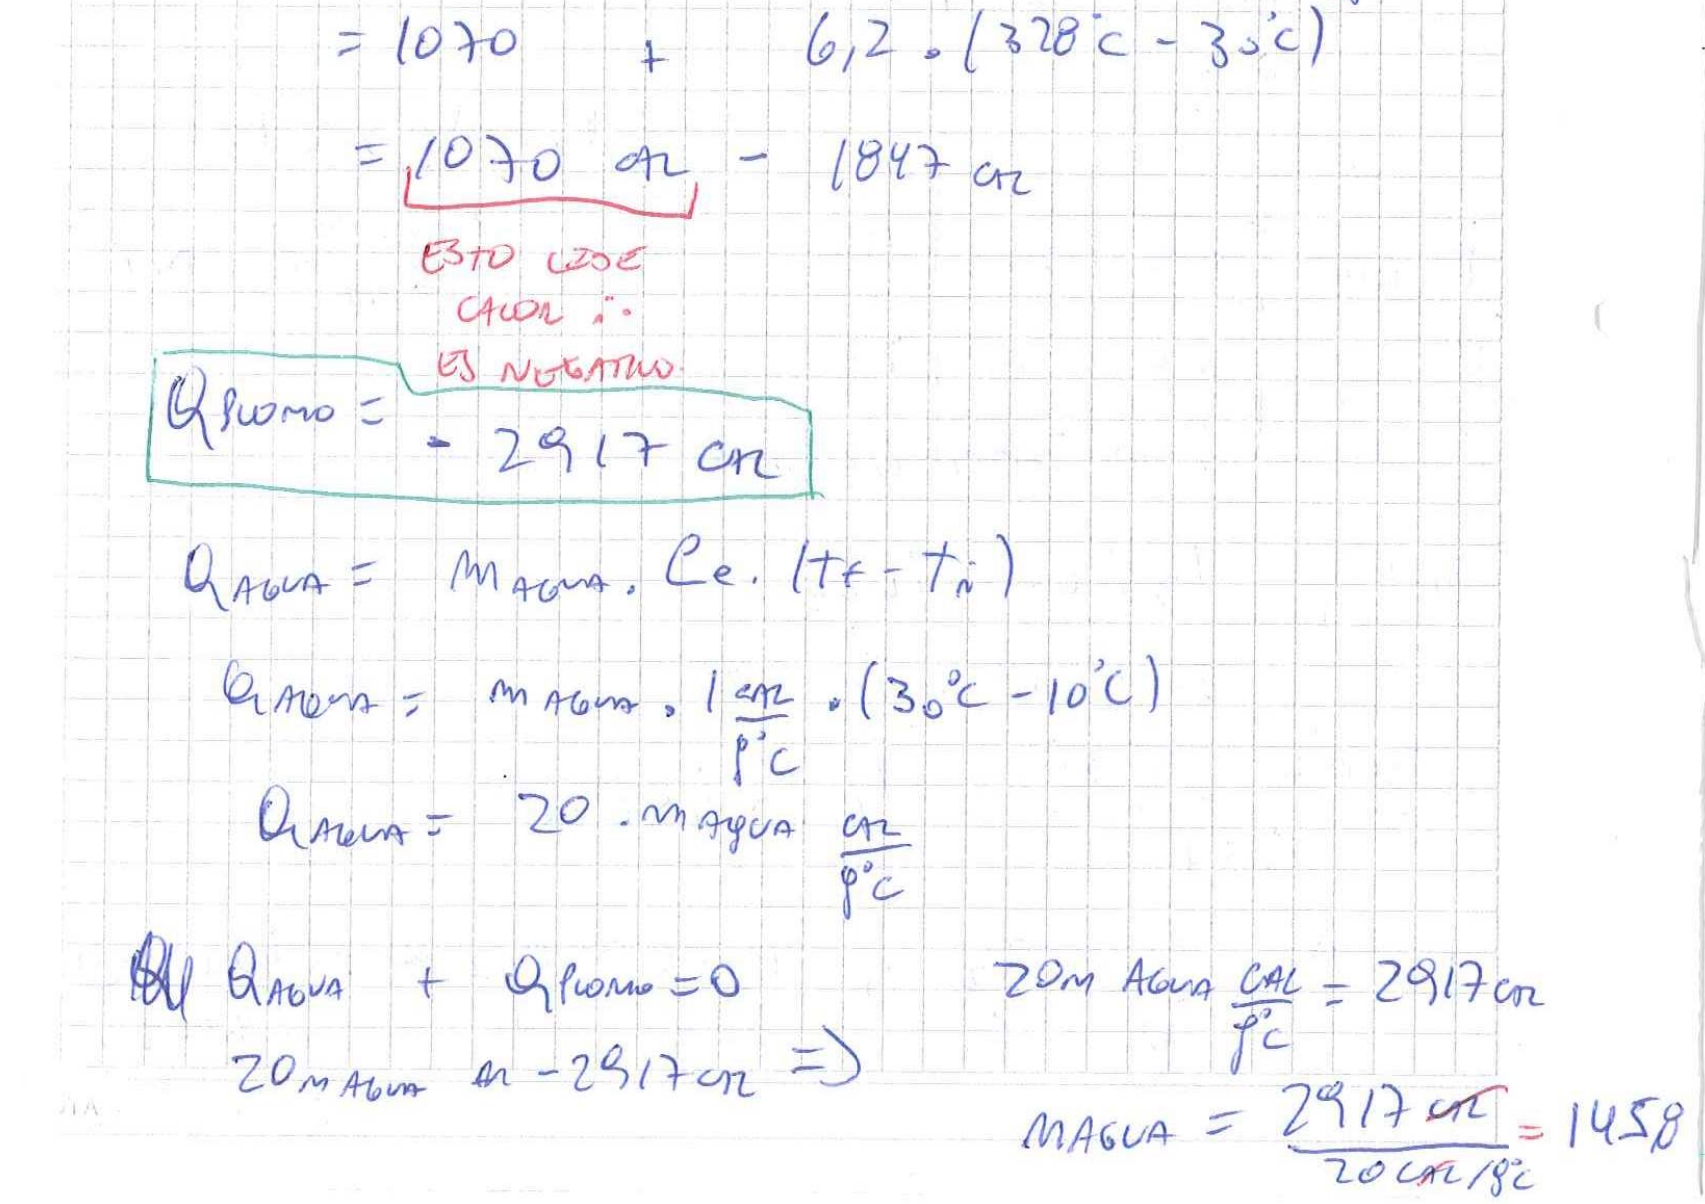 = 1070 + 6,2 . (328°C - 30°C)
= 1070 CAL - 1847 CAL
ESTO CEDE
CALOR ∴
ES NEGATIVO
Q PLOMO =
- 2917 CAL
Q AGUA = m AGUA . Ce . (Tf - Ti)
Q AGUA = m AGUA . 1 CAL/g°C . (30°C - 10°C)
Q AGUA = 20 . m AGUA CAL/g°C
Q AGUA + Q PLOMO = 0
20 m AGUA CAL/g°C = 2917 CAL
20 m AGUA - 2917 CAL =>
m AGUA = 2917 CAL / 20 CAL/g°C = 145g